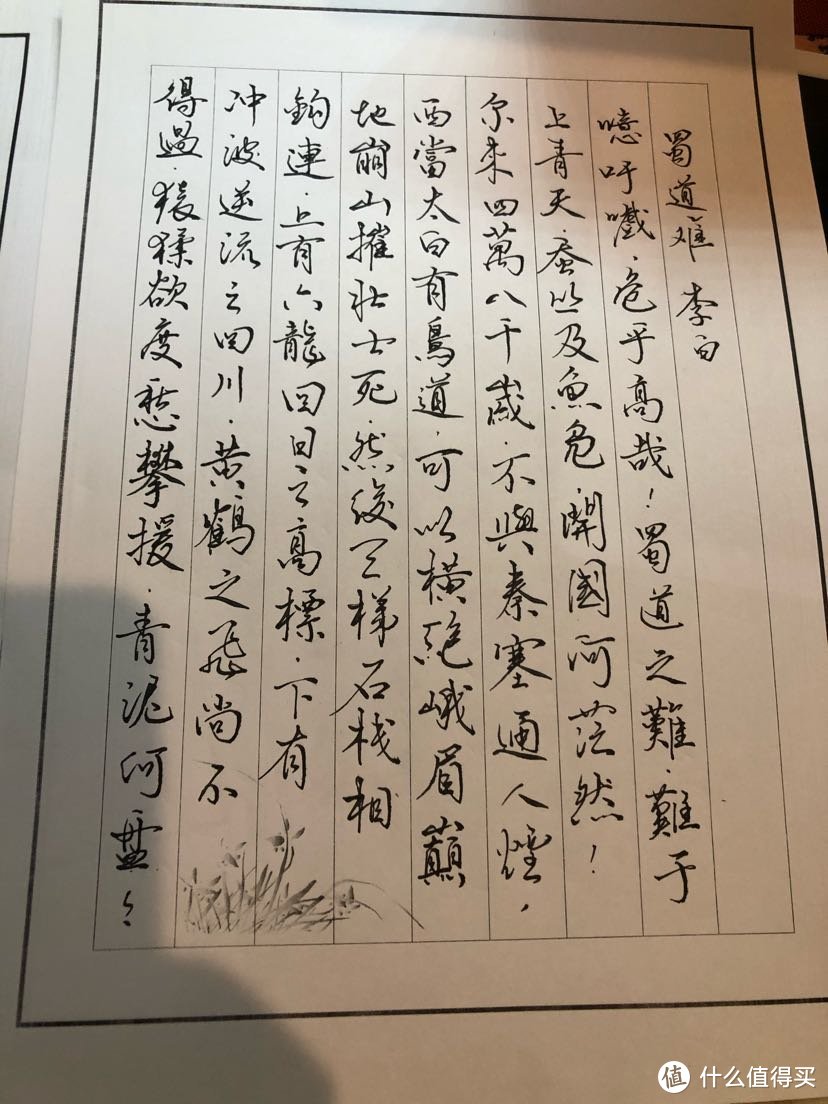 蜀道难 李白
噫吁嚱，危乎高哉！蜀道之難，難于
上青天，蚕丛及魚凫，開國何茫然！
尔来四萬八千歲，不與秦塞通人煙，
西當太白有鳥道，可以横绝峨眉巔
地崩山摧壮士死，然後天梯石栈相
鈎連，上有六龍回日之高標，下有
冲波逆流之回川，黄鶴之飛尚不
得過，猿猱欲度愁攀援，青泥何盘々
值 什么值得买